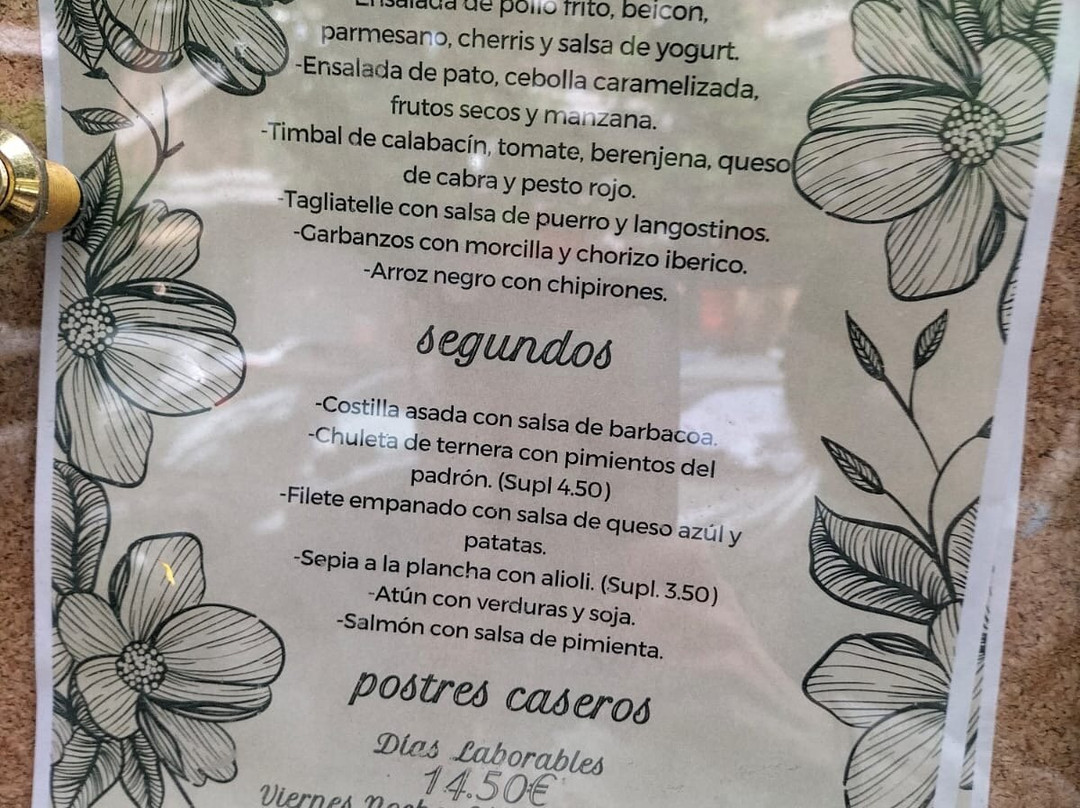 Ensalada de pollo frito, beicon,
parmesano, cherris y salsa de yogurt.
-Ensalada de pato, cebolla caramelizada,
frutos secos y manzana.
-Timbal de calabacín, tomate, berenjena, queso
de cabra y pesto rojo.
-Tagliatelle con salsa de puerro y langostinos.
-Garbanzos con morcilla y chorizo iberico.
-Arroz negro con chipirones.
segundos
-Costilla asada con salsa de barbacoa.
-Chuleta de ternera con pimientos del
padrón. (Supl 4.50)
-Filete empanado con salsa de queso azúl y
patatas.
-Sepia a la plancha con alioli. (Supl. 3.50)
-Atún con verduras y soja.
-Salmón con salsa de pimienta.
postres caseros
Días Laborables
14.50€
Viernes